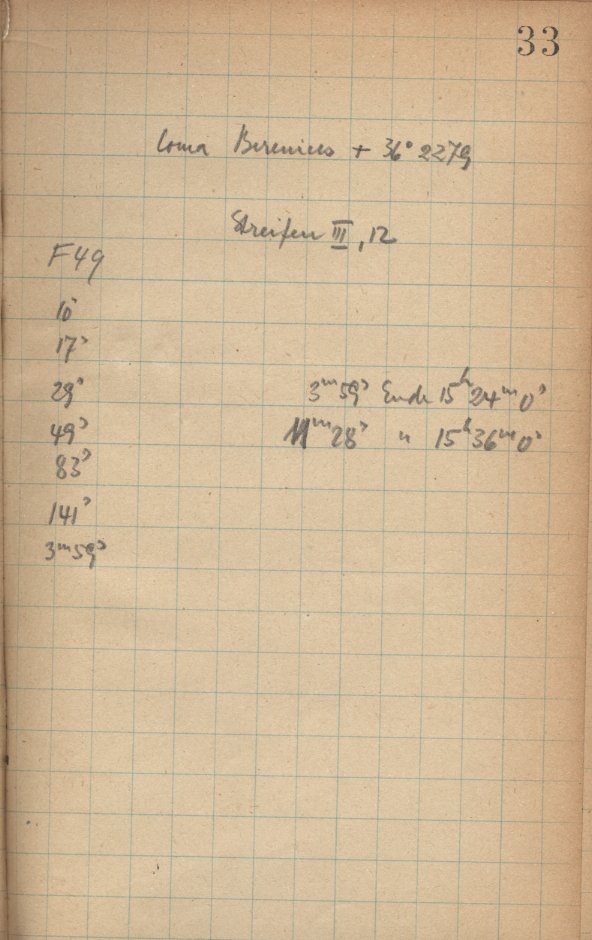 33
Coma Berenices + 36° 2279
Streifen III, 12
F49
10ˢ
17ˢ
29ˢ 3ᵐ59ˢ Ende 15ʰ24ᵐ0ˢ
49ˢ 11ᵐ28ˢ " 15ʰ36ᵐ0ˢ
83ˢ
141ˢ
3ᵐ59ˢ